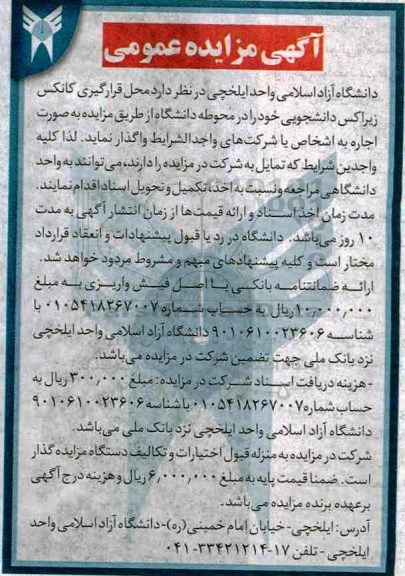 آگهی مزایده عمومی
دانشگاه آزاد اسلامی واحد ایلخچی در نظر دارد محل قرارگیری کانکس
زیراکس دانشجویی خود را در محوطه دانشگاه از طریق مزایده به صورت
اجاره به اشخاص یا شرکت‌های واجد الشرایط واگذار نماید. لذا کلیه
واجدین شرایط که تمایل به شرکت در مزایده را دارند، می‌توانند به واحد
دانشگاهی مراجعه و نسبت به اخذ، تکمیل و تحویل اسناد اقدام نمایند.
مدت زمان اخذ اسناد و ارائه قیمت‌ها از زمان انتشار آگهی به مدت
۱۰ روز می‌باشد. دانشگاه در رد یا قبول پیشنهادات و انعقاد قرارداد
مختار است و کلیه پیشنهادهای مبهم و مشروط مردود خواهد شد.
ارائه ضمانتنامه بانکی یا اصل فیش واریزی به مبلغ
۱۰,۰۰۰,۰۰۰ ریال به حساب شماره ۰۱۰۵۴۱۸۲۶۷۰۰۷ با
شناسه ۹۰۱۰۶۱۰۰۲۳۶۰۶ دانشگاه آزاد اسلامی واحد ایلخچی
نزد بانک ملی جهت تضمین شرکت در مزایده می‌باشد.
- هزینه دریافت اسناد شرکت در مزایده: مبلغ ۳۰۰,۰۰۰ ریال به
حساب شماره ۰۱۰۵۴۱۸۲۶۷۰۰۷ با شناسه ۹۰۱۰۶۱۰۰۲۳۶۰۶
دانشگاه آزاد اسلامی واحد ایلخچی نزد بانک ملی می‌باشد.
شرکت در مزایده به منزله قبول اختیارات و تکالیف دستگاه مزایده گذار
است. ضمنا قیمت پایه به مبلغ ۶,۰۰۰,۰۰۰ ریال و هزینه درج آگهی
بر عهده برنده مزایده می‌باشد.
آدرس: ایلخچی - خیابان امام خمینی (ره) - دانشگاه آزاد اسلامی واحد
ایلخچی - تلفن ۱۷-۳۳۴۲۱۲۱۴-۰۴۱